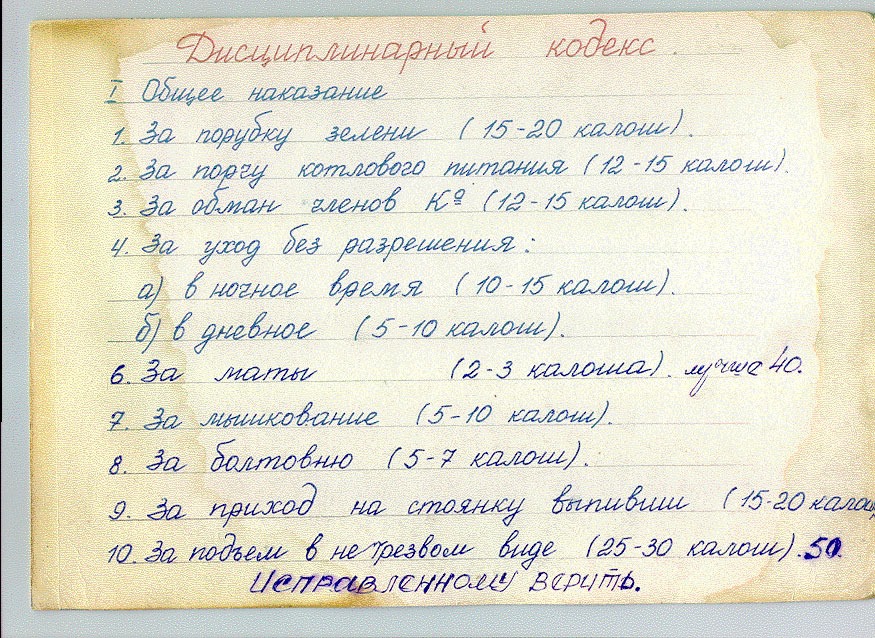 Дисциплинарный кодекс.
I Общее наказание
1. За порубку зелени (15-20 калош).
2. За порчу котлового питания (12-15 калош).
3. За обман членов Кº (12-15 калош).
4. За уход без разрешения:
а) в ночное время (10-15 калош).
б) в дневное (5-10 калош).
6. За маты (2-3 калоша). лучше 40.
7. За мышкование (5-10 калош).
8. За болтовню (5-7 калош).
9. За приход на стоянку выпивши (15-20 калош
10. За подъем в нетрезвом виде (25-30 калош). 50.
Исправленному верить.